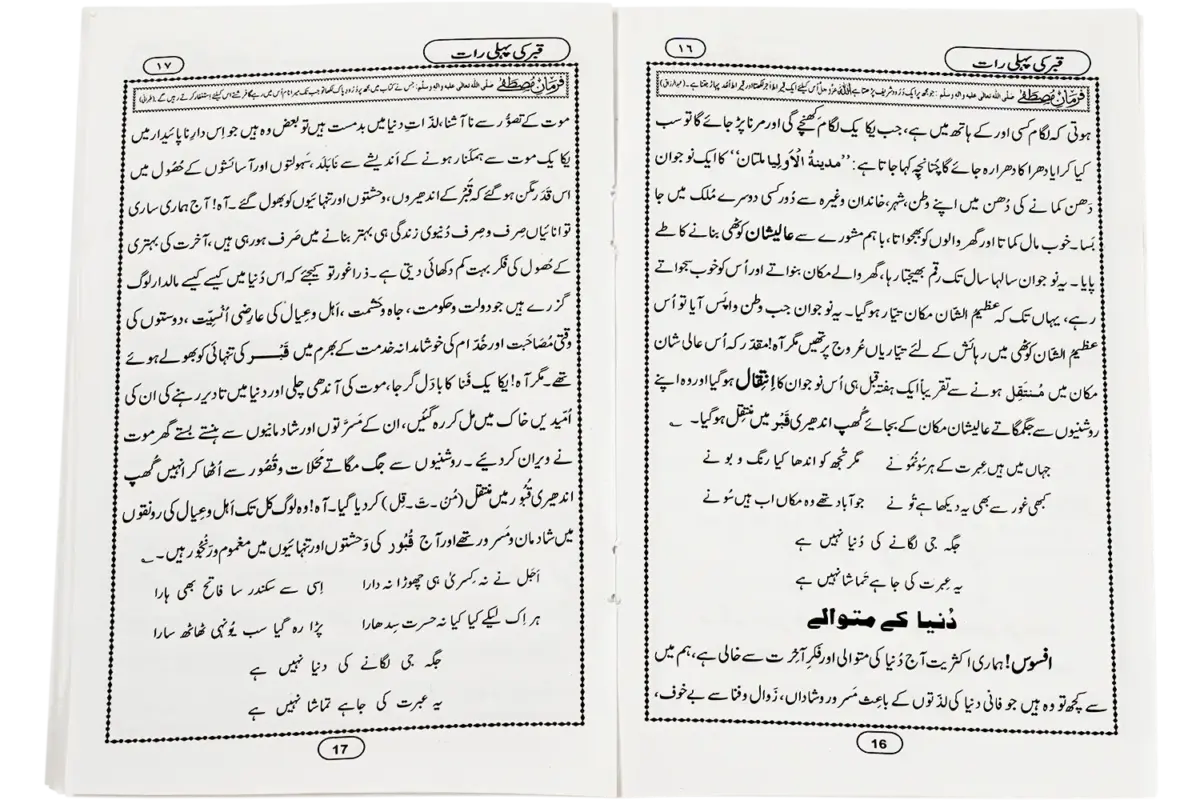 ۱۶
قبر کی پہلی رات
فرمانِ مصطفٰے صلی اللہ تعالٰی علیہ والہ وسلم: جو مجھ پر ایک دُرُود شریف پڑھتا ہے اللہ عزوجل اُس کیلئے ایک قیراط اَجر لکھتا اور قیراط اُحُد پہاڑ جتنا ہے۔ (عبدالرزاق)
ہوتی کہ لگام کسی اور کے ہاتھ میں ہے، جب یکایک لگام کھنچے گی اور مرنا پڑ جائے گا تو سب
کیا کرایا دھرا کا دھرا رہ جائے گا چُنانچِہ کہا جاتا ہے: ”مدینۃُ الْاَولیا ملتان“ کا ایک نوجوان
دَھن کمانے کی دُھن میں اپنے وطن، شہر، خاندان وغیرہ سے دُور کسی دوسرے مُلک میں جا
بسا۔ خوب مال کماتا اور گھر والوں کو بھجواتا، باہم مشورے سے عالیشان کوٹھی بنانے کا طے
پایا۔ یہ نوجوان سالہا سال تک رقم بھیجتا رہا، گھر والے مکان بنواتے اور اُس کو خوب سجواتے
رہے، یہاں تک کہ عظیمُ الشّان مکان تیّار ہو گیا۔ یہ نوجوان جب وطن واپَس آیا تو اُس
عظیمُ الشّان کوٹھی میں رِہائش کے لئے تیّاریاں عُروج پر تھیں مگر آہ! مقدّر کہ اُس عالی شان
مکان میں مُنتَقِل ہونے سے تقریباً ایک ہفتہ قبل ہی اُس نوجوان کا اِنتِقال ہو گیا اور وہ اپنے
روشنیوں سے جگمگاتے عالیشان مکان کے بجائے گُھپ اندھیری قَبْر میں منتقِل ہو گیا۔
جہاں میں ہیں عبرت کے ہر سُو نُمُونے مگر تجھ کو اندھا کیا رنگ و بو نے
کبھی غور سے بھی یہ دیکھا ہے تُو نے جو آباد تھے وہ مکاں اب ہیں سُونے
جگہ جی لگانے کی دُنیا نہیں ہے
یہ عِبرت کی جا ہے تَماشا نہیں ہے
دُنیا کے متوالے
افسوس! ہماری اکثریَت آج دُنیا کی متوالی اور فکرِ آخِرت سے خالی ہے، ہم میں
سے کچھ تو وہ ہیں جو فانی دنیا کی لذّتوں کے باعِث مَسرور و شاداں، زَوال و فنا سے بے خوف،
16
قبر کی پہلی رات
۱۷
فرمانِ مصطفٰے صلی اللہ تعالٰی علیہ والہ وسلم: جس نے کتاب میں مجھ پر دُرُود پاک لکھا تو جب تک میرا نام اُس میں رہے گا فرشتے اس کیلئے استغفار کرتے رہیں گے۔ (طبرانی)
موت کے تصوُّر سے نا آشنا، لذّاتِ دنیا میں بدمست ہیں تو بعض وہ ہیں جو اِس دارِ ناپائیدار میں
یکایک موت سے ہمکنار ہونے کے اَندیشے سے نابَلَد، سَہولتوں اور آسائشوں کے حُصُول میں
اس قَدَر مگن ہو گئے کہ قَبْر کے اندھیروں، وَحشتوں اور تنہائیوں کو بھول گئے۔ آہ! آج ہماری ساری
توانائیاں صِرف و صِرف دُنیوی زندگی ہی بہتر بنانے میں صَرف ہو رہی ہیں، آخرت کی بہتری
کے حُصُول کی فکر بہت کم دکھائی دیتی ہے۔ ذرا غور تو کیجئے کہ اس دُنیا میں کیسے کیسے مالدار لوگ
گزرے ہیں جو دولت و حکومت، جاہ و حَشمت، اَہل و عِیال کی عارِضی اُنْسِیَّت، دوستوں کی
وقتی مُصَاحَبت اور خُدّام کی خوشامدانہ خدمت کے بھرم میں قَبْر کی تنہائی کو بھولے ہوئے
تھے۔ مگر آہ! یکایک فَنا کا بادَل گرجا، موت کی آندھی چلی اور دنیا میں تادیر رہنے کی ان کی
اُمّیدیں خاک میں مل کر رہ گئیں، ان کے مَسَرَّتوں اور شادمانیوں سے ہنستے بستے گھر موت
نے ویران کر دیئے۔ روشنیوں سے جگمگاتے مَحَلّات و قُصُور سے اُٹھا کر انہیں گُھپ
اندھیری قُبُور میں منتقل (مُن۔تَ۔قِل) کر دیا گیا۔ آہ! وہ لوگ کل تک اَہل و عِیال کی رونقوں
میں شادمان و مَسرور تھے اور آج قُبُور کی وَحشتوں اور تنہائیوں میں مغموم و رَنْجُور ہیں۔
اَجَل نے نہ کِسریٰ ہی چھوڑا نہ دارا اِسی سے سکندر سا فاتح بھی ہارا
ہر اِک لیکے کیا کیا نہ حسرت سِدھارا پڑا رہ گیا سب یُونہی ٹھاٹھ سارا
جگہ جی لگانے کی دنیا نہیں ہے
یہ عبرت کی جا ہے تماشا نہیں ہے
17